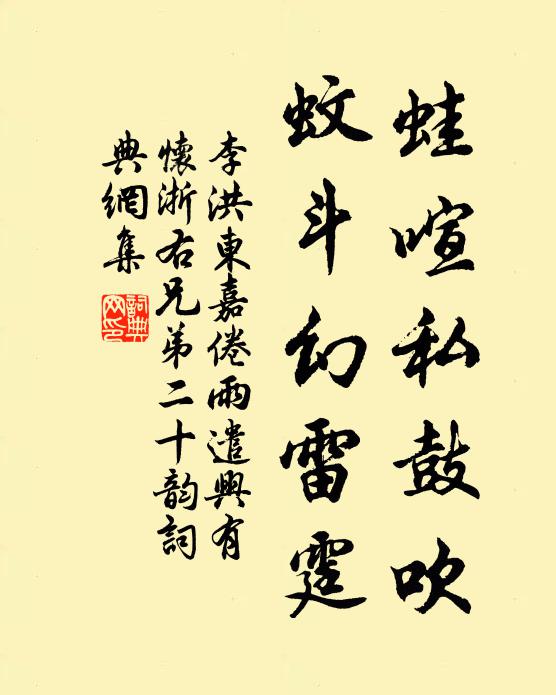 蛙喧私鼓吹
蚊斗幻雷霆
李洪東嘉倦雨遣興有
懷浙右兄弟二十韵詞
典網集
詞典
网印